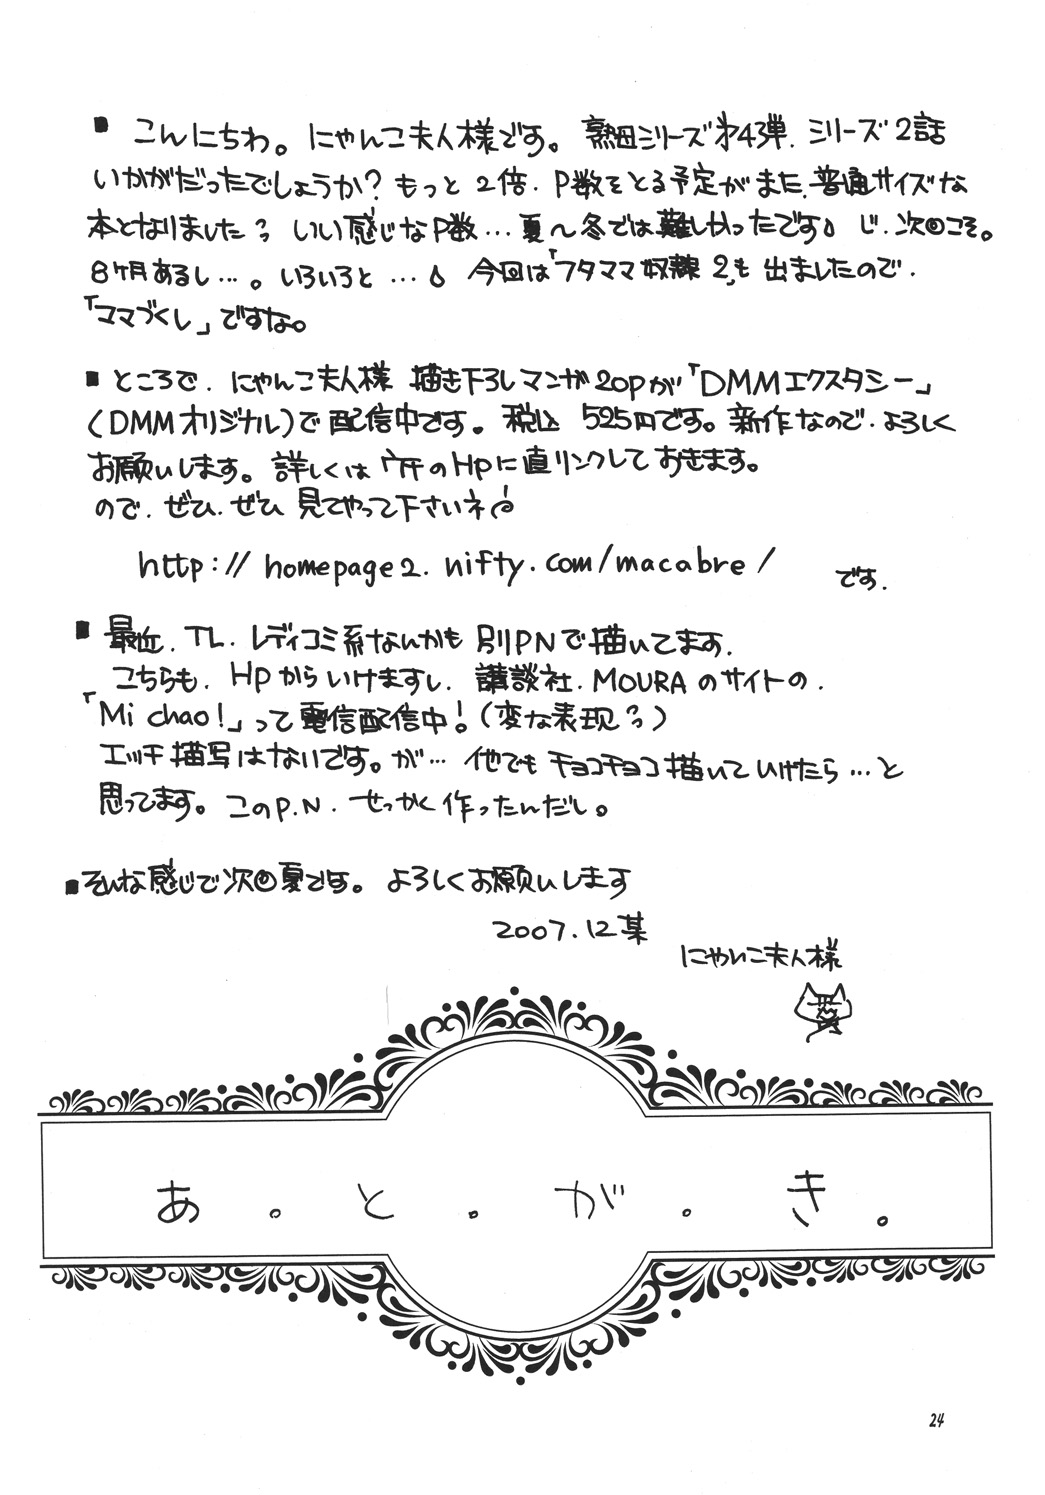 ■ こんにちわ。にゃんこ夫人様です。熟母シリーズ第4弾、シリーズ2話
いかがだったでしょうか?もっと2倍、P数をとる予定がまた、普通サイズな
本となりました いい感じなP数…夏〜冬では難しかったです じ、次回こそ。
8ケ月あるし…。いろいろと… 今回は「フタママ奴隷2」も出ましたので、
「ママづくし」ですな。
■ ところで、にゃんこ夫人様 描き下ろしマンガ20Pが「DMMエクスタシー」
(DMMオリジナル)で配信中です。税込 525円です。新作なので、よろしく
お願いします。詳しくはウチのHPに直リンクしておきます。
ので、ぜひ、ぜひ見てやって下さいネ
http://homepage2.nifty.com/macabre/ です。
■ 最近、TL、レディコミ系なんかも別PNで描いてます。
こちらも、HPからいけますし、講談社、MOURAのサイトの、
「Mi chao!」って電信配信中!(変な表現)
エッチ描写はないです。が…他でもチョコチョコ描いていけたら…と
思ってます。このP.N、せっかく作ったんだし。
■そんな感じで次回夏です。よろしくお願いします
2007.12某
にゃんこ夫人様
あ。と。が。き。
24